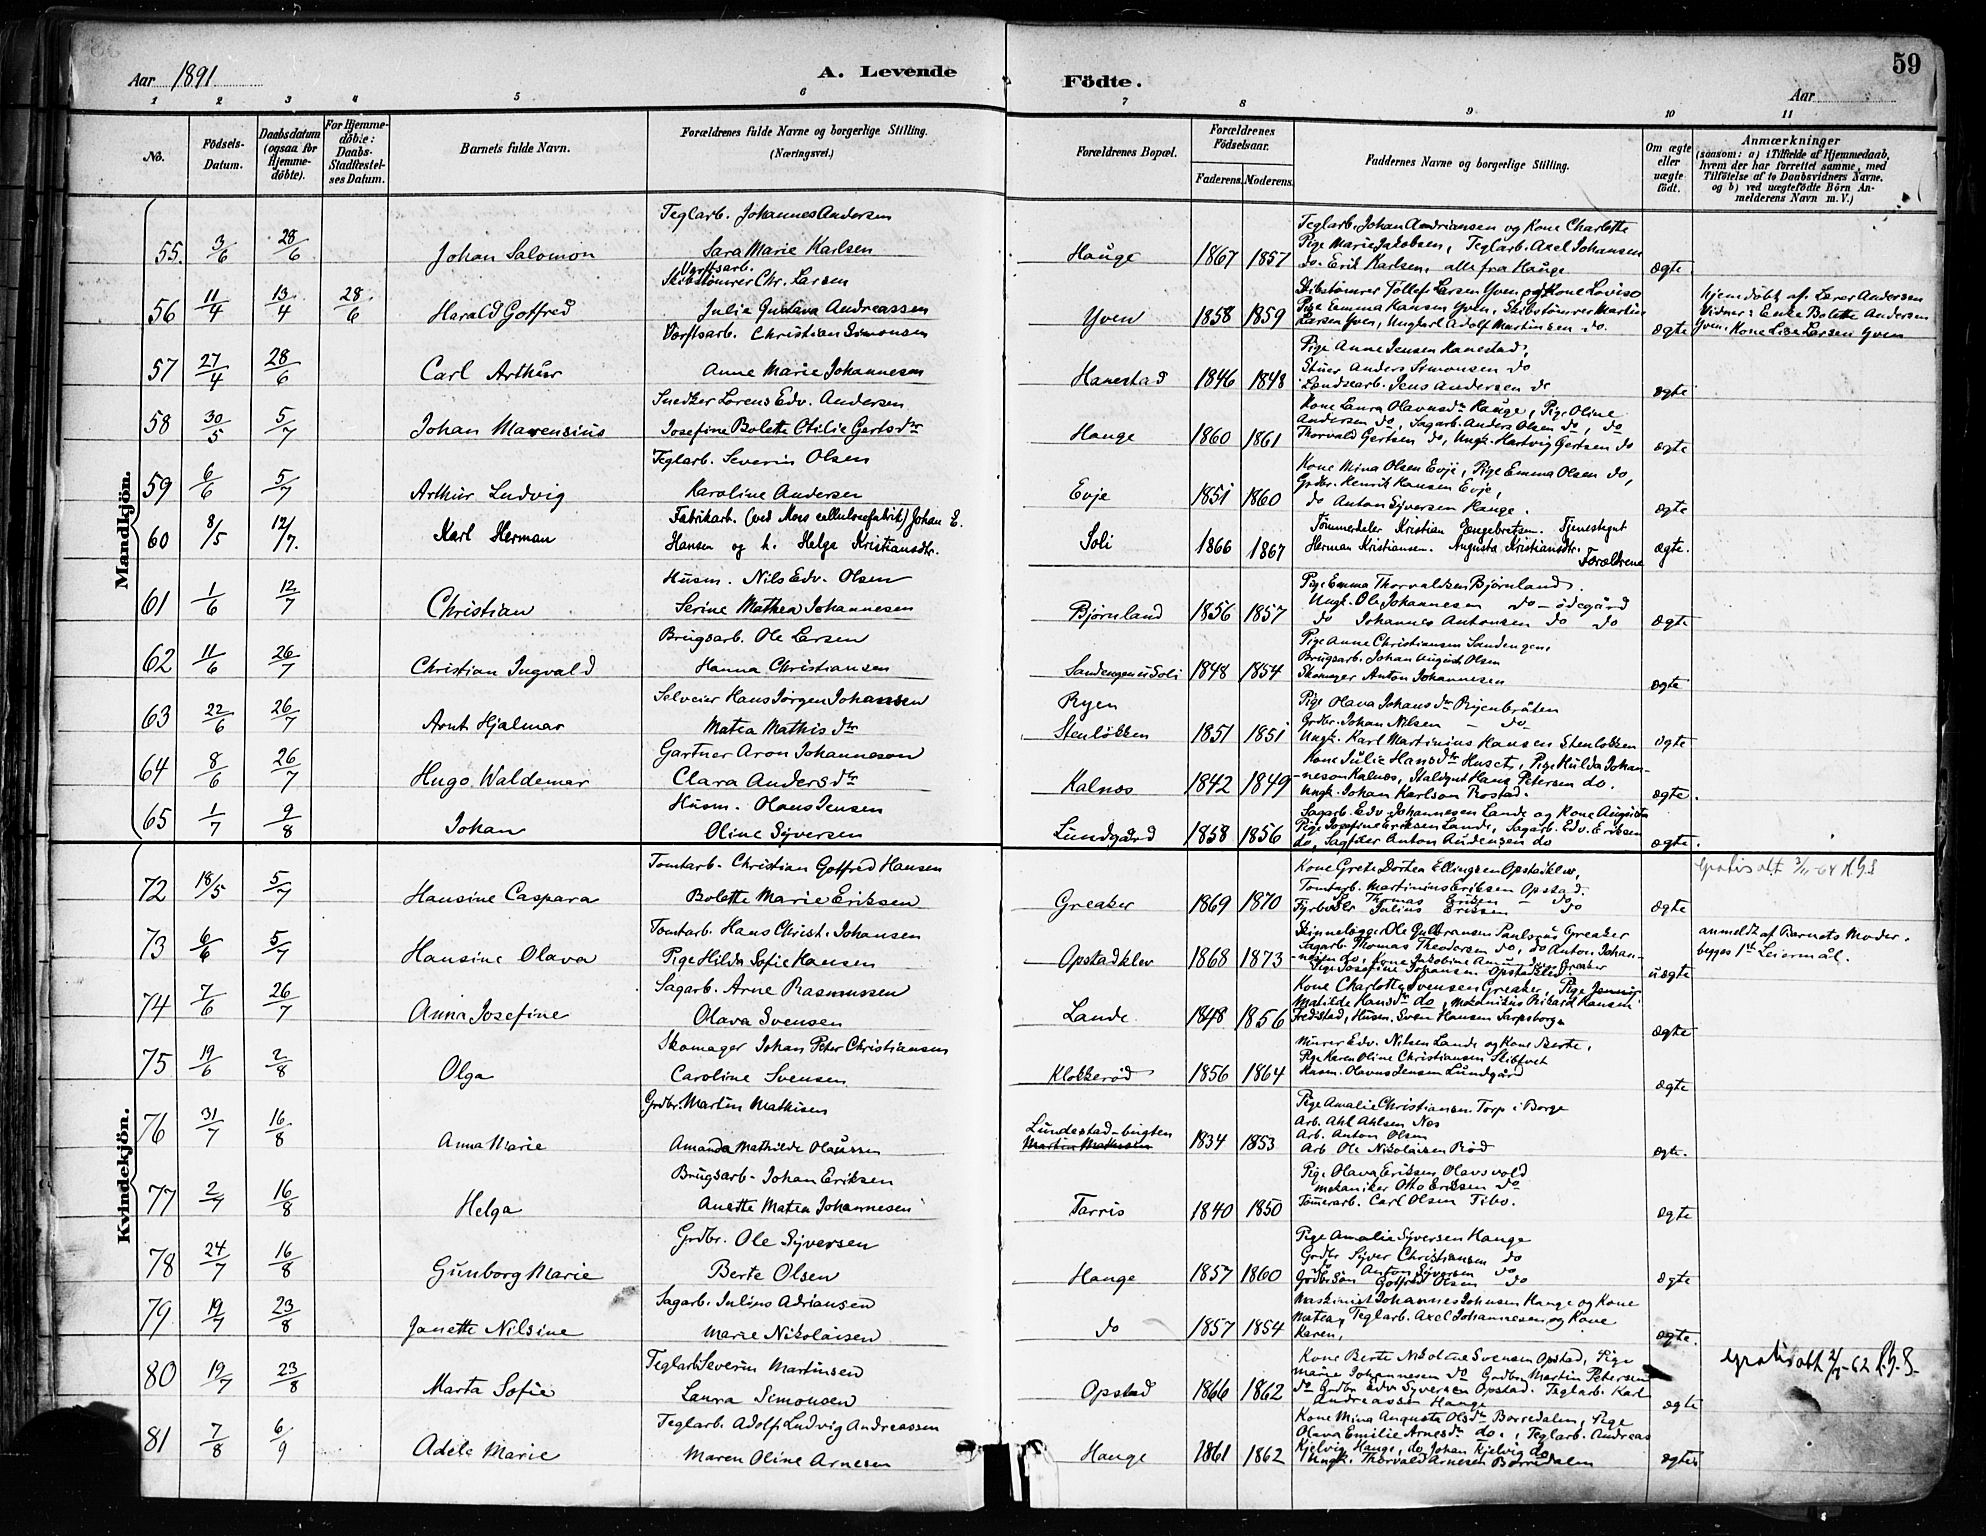 Aar 1891
A. Levende
Födte.
59
Aar
1 2 3 4 5 6 7 8 9 10 11
No.
Födsels-Datum.
Daabsdatum (ogsaa for Hjemme-döbte).
For Hjemme-döbte: Daabs-Stadfæstel-ses Datum.
Barnets fulde Navn.
Forældrenes fulde Navne og borgerlige Stilling. (Næringsvei.)
Forældrenes Bopæl.
Forældrenes Födselsaar.
Faderens. Moderens.
Faddernes Navne og borgerlige Stilling.
Om ægte eller uægte födt.
Anmærkninger
(saasom: a) i Tilfælde af Hjemmedaab, hvem der har forrettet samme, med Tilföielse af to Daabsvidners Navne. og b) ved uægtefödte Börn An-melderens Navn m. V.)
Mandkjön.
55. 3/6 28/6 Johan Salomon
Teglarb. Johannes Andersen
Sara Marie Karlsen
Hauge 1867 1857
Teglarb. Johan Andriansen og Kone Charlotte
Pige Marie Jakobsen, Teglarb. Axel Johansen
do. Erik Karlsen, alle fra Hauge
ægte
56 11/4 13/4 28/6 Harald Gotfred
Værftsarb.
Skibstømrer Chr. Larsen
Julie Gustava Andreassen
Yven 1858 1859
Skibstømrer Tollef Larsen Yven og Kone Lovise
Pige Emma Hansen Yven, Skibstømrer Martin
Larsen Yven, Ungkarl Adolf Martinsen do.
ægte
hjemdøbt af Lærer Andersen
Vidner: Enke Bolette Andersen
Yven, Kone Lise Larsen Yven
57 27/4 28/6 Carl Arthur
Værftsarb. Christian Simonsen
Anne Marie Johannesen
Hanestad 1846 1848
Pige Anne Jensen Hanestad,
Stuer Anders Simonsen do
Landsearb. Jens Andersen do
ægte
58 30/5 5/7 Johan Marensius
Snedker Lorens Edv. Andersen
Josefine Bolette Otilie Gertsdtr
Hauge 1860 1861
Kone Laura Olavusdtr Hauge, Pige Oline
Andersen do, Sagarb. Anders Olsen do, do
Thorvald Gertsen do, Ungk. Hartvig Gertsen do
ægte
59 6/6 5/7 Arthur Ludvig
Teglarb. Severin Olsen
Karoline Andersen
Evje 1851 1860
Kone Mina Olsen Evje, Pige Emma Olsen do,
Grdbr. Henrik Hansen Evje,
do Anton Syversen Hauge.
ægte
60 8/5 12/7. Karl Herman
Fabrikarb. (ved Moss cellulosefabrik) Johan E.
Hansen og h. Helga Kristiansdtr.
Soli 1866 1867
Tømmerdeler Kristian Engebretsen. Tjenestegut
Herman Kristiansen. Augusta Kristiansdtr.
Forældrene
ægte.
61 1/6 12/7 Christian
Husm. Nils Edv. Olsen
Serine Mathea Johannesen
Bjørnland 1856 1857
Pige Emma Thorvaldsen Bjørnland
Ungk. Ole Johannesen do - ødegård
do Johannes Antonsen do do
ægte
62 11/6 26/7 Christian Ingvald
Brugsarb. Ole Larsen
Hanna Christiansen
Sandengen u Soli 1848 1854
Pige Anne Christiansen Sandengen,
Brugsarb. Johan August Olsen
Skomager Anton Johannesen
ægte
63 22/6 26/7 Arnt Hjalmar
Selveier Hans Jørgen Johanssen
Matea Mathisdtr
Ryen
Stenløkken 1851 1851
Pige Olava Johansdtr Ryenbråten
Grdbr. Johan Nilsen - do
Ungk. Karl Martinius Hansen Stenløkken
ægte
64 8/6 26/7 Hugo Waldemar
Gartner Aron Johanneson
Clara Andersdtr
Kalnæs 1842 1849
Kone Julie Hansdtr Huset, Pige Hulda Johan-
neson Kalnæs, Staldgut Hans Petersen do.
Ungk. Johan Karlson Rostad.
ægte.
65 1/7 9/8 Johan
Husm. Olaus Jensen
Oline Syversen
Lundgård 1858 1856
Sagarb. Edv. Johannesen Lande og Kone Augusta
Pige Josefine Eriksen Lande, Sagarb. Edv. Eriksen
do, Sagfeier Anton Audensen do
ægte.
Kvindekjön.
72 18/5 5/7 Hansine Caspara
Tomtarb. Christian Gotfred Hansen
Bolette Marie Eriksen
Greaker 1869 1870
Kone Grete Dortea Ellingsen Opstadklev,
Tomtarb. Martinius Eriksen Opstad.
do Thomas Eriksen - do
Fyrbøder Julius Eriksen do
ægte
73 6/6 5/7 Hansine Olava
Tomtarb. Hans Christ. Johansen
Pige Hilda Sofie Hansen
Opstadklev 1868 1873
uægte
anmeldt af Barnets Moder.
begges 1ste Leiermål.
74 7/6 26/7 Anna Josefine
Sagarb. Arne Rasmussen
Olava Svensen
Lande 1848 1856
Kone Charlotte Svensen Greaker, Pige
Matilde Hansdtr do, Mekanikus Rikard Hansen
Fredrstad, Husm. Sven Hansen Sarpsborg
ægte
75 19/6 2/8 Olga
Skomager Johan Peter Christiansen
Caroline Svensen
Klokkerød 1856 1864
Murer Edv. Nilsen Lande og Kone Berte,
Pige Karen Oline Christiansen Skibtvet
Husm. Olavus Jensen Lundgård
ægte
76 31/7 16/8 Anna Marie
Grdbr. Martin Mathisen
Amanda Mathilde Olaussen
Lundestad-bugten
Martin Mathisen 1834 1853
Pige Amalie Christiansen Torp i Borge
Arb. Ahl Ahlsen Nes
Arb. Anton Olsen
Arb Ole Nikolaisen Rød
ægte.
77 2/7 16/8 Helga
Brugsarb. Johan Eriksen
Anette Matea Johannesen
Tarris 1840 1850
Pige Olava Eriksen Olavsvold
Mekaniker Otto Eriksen do
Tømerarb. Carl Olsen Tibo.
ægte
78 24/7 16/8 Gunborg Marie
Grdbr. Ole Syversen
Berte Olsen
Hauge 1857 1860
Pige Amalie Syversen Hauge
Grdbr Syver Christiansen do
do Anton Syversen do
Grdbr.søn Gotfred Olsen do
ægte
79 19/7 23/8 Janette Nilsine
Sagarb. Julius Adriansen
Marie Nikolaisen
do 1857 1854
Maskinist Johannes Johnsen Hauge og Kone
Matea, Teglarb. Axel Johannesen og Kone
Karen,
ægte.
80 19/7 23/8 Marta Sofie
Teglarb Severin Martinsen
Laura Simonsen
Opstad 1866 1862
Kone Berte Nikoline Svensen Opstad, Pige
Marie Johannesen do Grdbr. Martin Petersen
do Grdbr Edv. Syversen Opstad. Teglarb. Karl
Andreassen Hauge
ægte
81 7/8 6/9 Adele Marie
Teglarb. Adolf Ludvig Andreassen
Maren Oline Arnesen
Hauge 1861 1862
Kone Mina Augusta Olsdtr Borredalen, Pige
Olava Emilie Arnesdtr do., Teglarb. Andreas
Kjelvig Hauge, do Johan Kjelvig do
Ungk. Thorvald Arnesen Borredalen
ægte